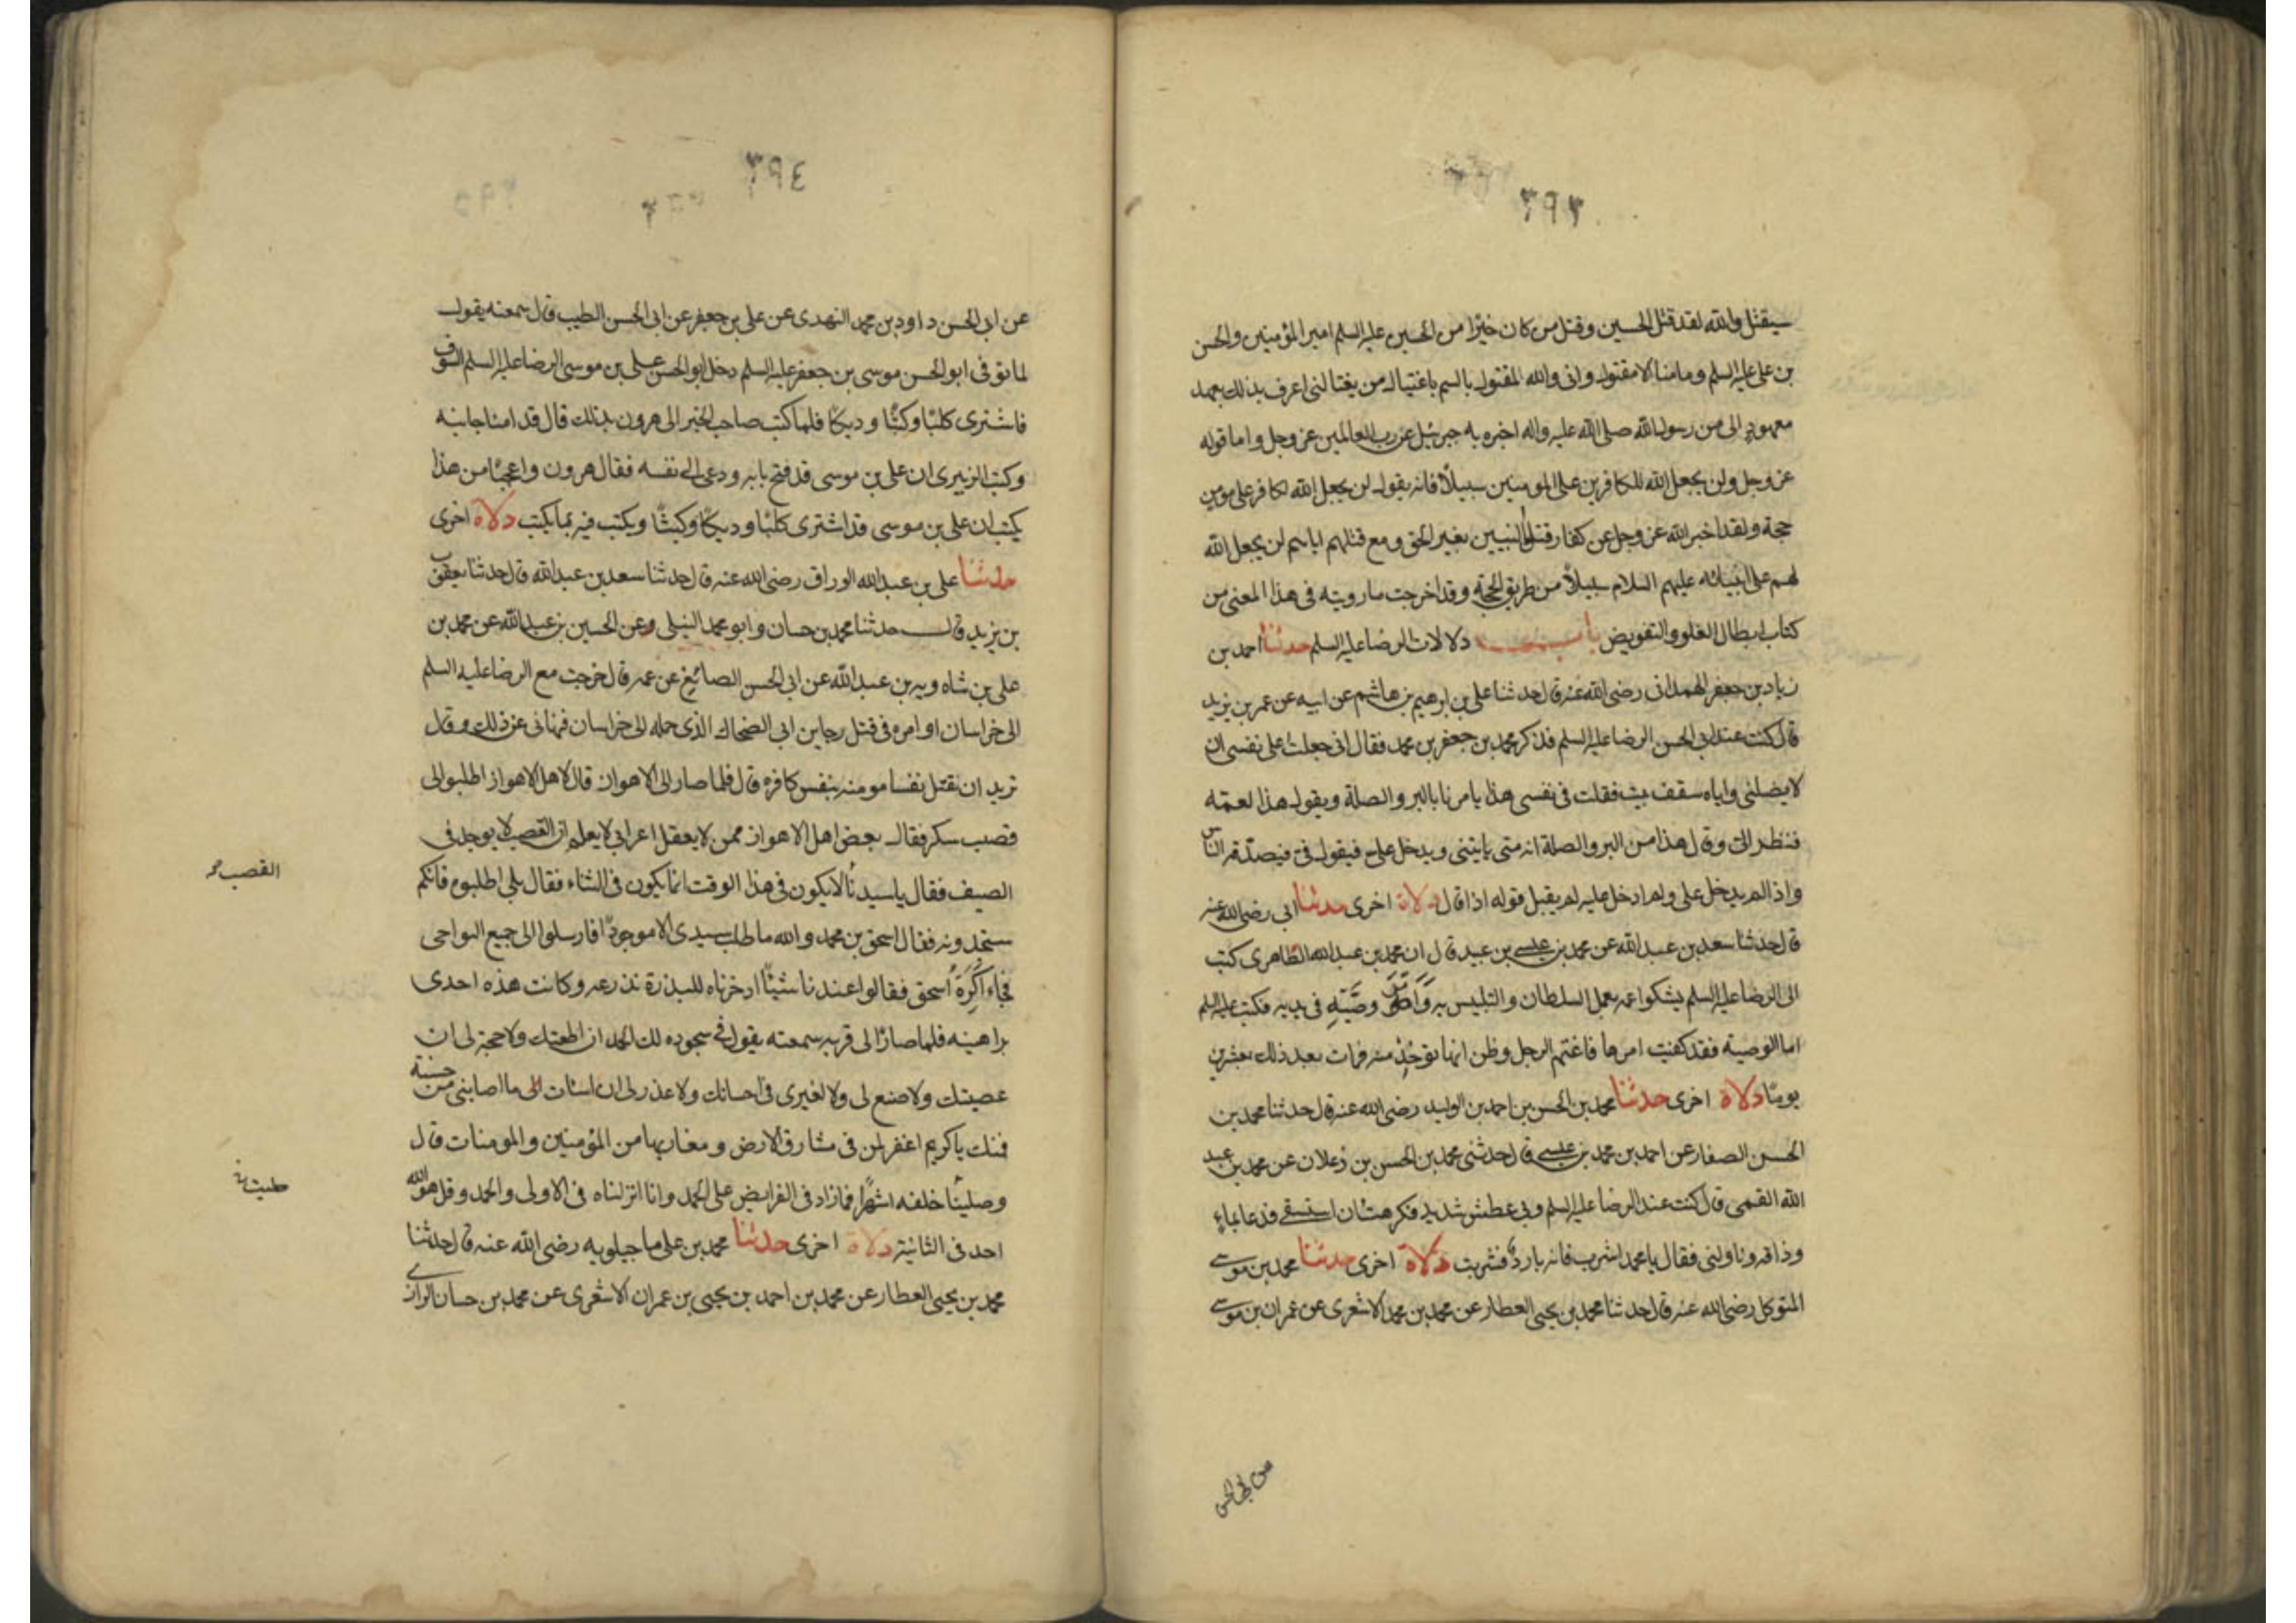 ٣٩٣
سيقتل والله لقد قتل الحسين وقتل من كان خيرا من الحسين عليه السلم امير المؤمنين والحسن
بن علي عليه السلم وما منا الا مقتول واني والله المقتول بالسم باغتيال من يغتالني اعرف بذلك بعهد
معهود الى من رسول الله صلى الله عليه واله اخبره به جبرئيل عن رب العالمين عز وجل واما قوله
عز وجل ولن يجعل الله للكافرين على المومنين سبيلا فانه يقول لن يجعل الله لكافر على مومن
حجة ولقد اخبر الله عز وجل عن كفار قتلوا النبيين بغير الحق ومع قتلهم اياهم لن يجعل الله
لهم على انبيائه عليهم السلام سبيلا من طريق الحجة وقد اخرجت ما رويته في هذا المعنى من
كتاب ابطال الغلو والتفويض باب دلالات الرضا عليه السلم حدثنا احمد بن
زياد بن جعفر الهمداني رضى الله عنه قال حدثنا علي بن ابرهيم بن هاشم عن ابيه عن عمر بن يزيد
قال كنت عند ابي الحسن الرضا عليه السلم فذكر محمد بن جعفر بن محمد فقال اني جعلت على نفسي ان
لا يضلني واياه سقف بيت فقلت في نفسي هذا يامرنا بالبر والصلة ويقول هذا لعمه
فنظر الي وقال هذا من البر والصلة انه متى ياتيني ويدخل علي فيقول في فيصدقه الناس
واذا لم يدخل علي ولم ادخل عليه لم يقبل قوله اذا قال دلالة اخرى حدثنا ابي رضى الله عنه
قال حدثنا سعد بن عبد الله عن محمد بن عيسى بن عبيد قال ان محمد بن عبد الله الطاهرى كتب
الى الرضا عليه السلم يشكوا عمه بعمل السلطان والتلبس به وامر وصيته في يديه فكتب عليه السلم
اما الوصية فقد كفيت امرها فاغتم الرجل وظن انها تؤخذ منه فمات بعد ذلك بعشرين
يوما دلالة اخرى حدثنا محمد بن الحسن بن احمد بن الوليد رضى الله عنه قال حدثنا محمد بن
الحسن الصفار عن احمد بن محمد بن عيسى قال حدثني محمد بن الحسن بن زعلان عن محمد بن عبيد
الله القمي قال كنت عند الرضا عليه السلم وبي عطش شديد فكرهت ان استسقى فدعا بماء
وذاقه وناولني فقال يا محمد اشرب فانه بارد فشربت دلالة اخرى حدثنا محمد بن موسى
المتوكل رضى الله عنه قال حدثنا محمد بن يحيى العطار عن محمد بن محمد الاشعرى عن عمران بن موسى
عن ابي الحسن
٣٩٤
عن ابي الحسن داود بن محمد النهدى عن علي بن جعفر عن ابي الحسن الطيب قال سمعته يقول
لما توفي ابو الحسن موسى بن جعفر عليه السلم دخل ابو الحسن علي بن موسى الرضا عليه السلم السوق
فاشترى كلبا وكبشا وديكا فلما كتب صاحب الخبر الى هرون بذلك قال قد امنا جانبه
وكتب الزبيرى ان علي بن موسى قد فتح بابه ودعى الى نفسه فقال هرون واعجبا من هذا
يكتب ان علي بن موسى قد اشترى كلبا وديكا وكبشا ويكتب فيه بما يكتب دلالة اخرى
حدثنا علي بن عبد الله الوراق رضى الله عنه قال حدثنا سعد بن عبد الله قال حدثنا يعقوب
بن يزيد قال حدثنا محمد بن حسان وابو محمد النيلي وعن الحسين بن عبد الله عن محمد بن
علي بن شاهويه بن عبد الله عن ابي الحسن الصائغ عن عمه قال خرجت مع الرضا عليه السلم
الى خراسان اوامره في قتل رجا بن ابي الضحاك الذى حمله الى خراسان فنهاني عن ذلك وقال
تريد ان تقتل نفسا مومنه بنفس كافره قال فلما صار الى الاهواز قال لاهل الاهواز اطلبوا لي
قصب سكر فقال بعض اهل الاهواز ممن لا يعقل اعرابي لا يعلم ان القصب لا يوجد في
القصب
الصيف فقال يا سيدنا لا يكون في هذا الوقت انما يكون في الشتاء فقال بلى اطلبوه فانكم
ستجدونه فقال اسحق بن محمد والله ما طلب سيدى الا موجودا فارسلوا الى جميع النواحى
فجاء اكرة اسحق فقالوا عندنا شيئا ادخرناه للبذرة نذرعه وكانت هذه احدى
براهينه فلما صار الى قرية سمعته يقول في سجوده لك الحمد ان اطعتك ولا حجة لي ان
عصيتك ولا صنع لي ولا لغيرى في احسانك ولا عذر لي ان اسات الى ما اصابني من حسنة
فمنك يا كريم اغفر لمن في مشارق الارض ومغاربها من المؤمنين والمومنات قال
وصلينا خلفه اشهرا فما زاد في الفرايض على الحمد وانا انزلناه في الاولى والحمد وقل هو الله
احد في الثانية دلالة اخرى حدثنا محمد بن علي ماجيلويه رضى الله عنه قال حدثنا
محمد بن يحيى العطار عن محمد بن احمد بن يحيى بن عمران الاشعرى عن محمد بن حسان الرازى